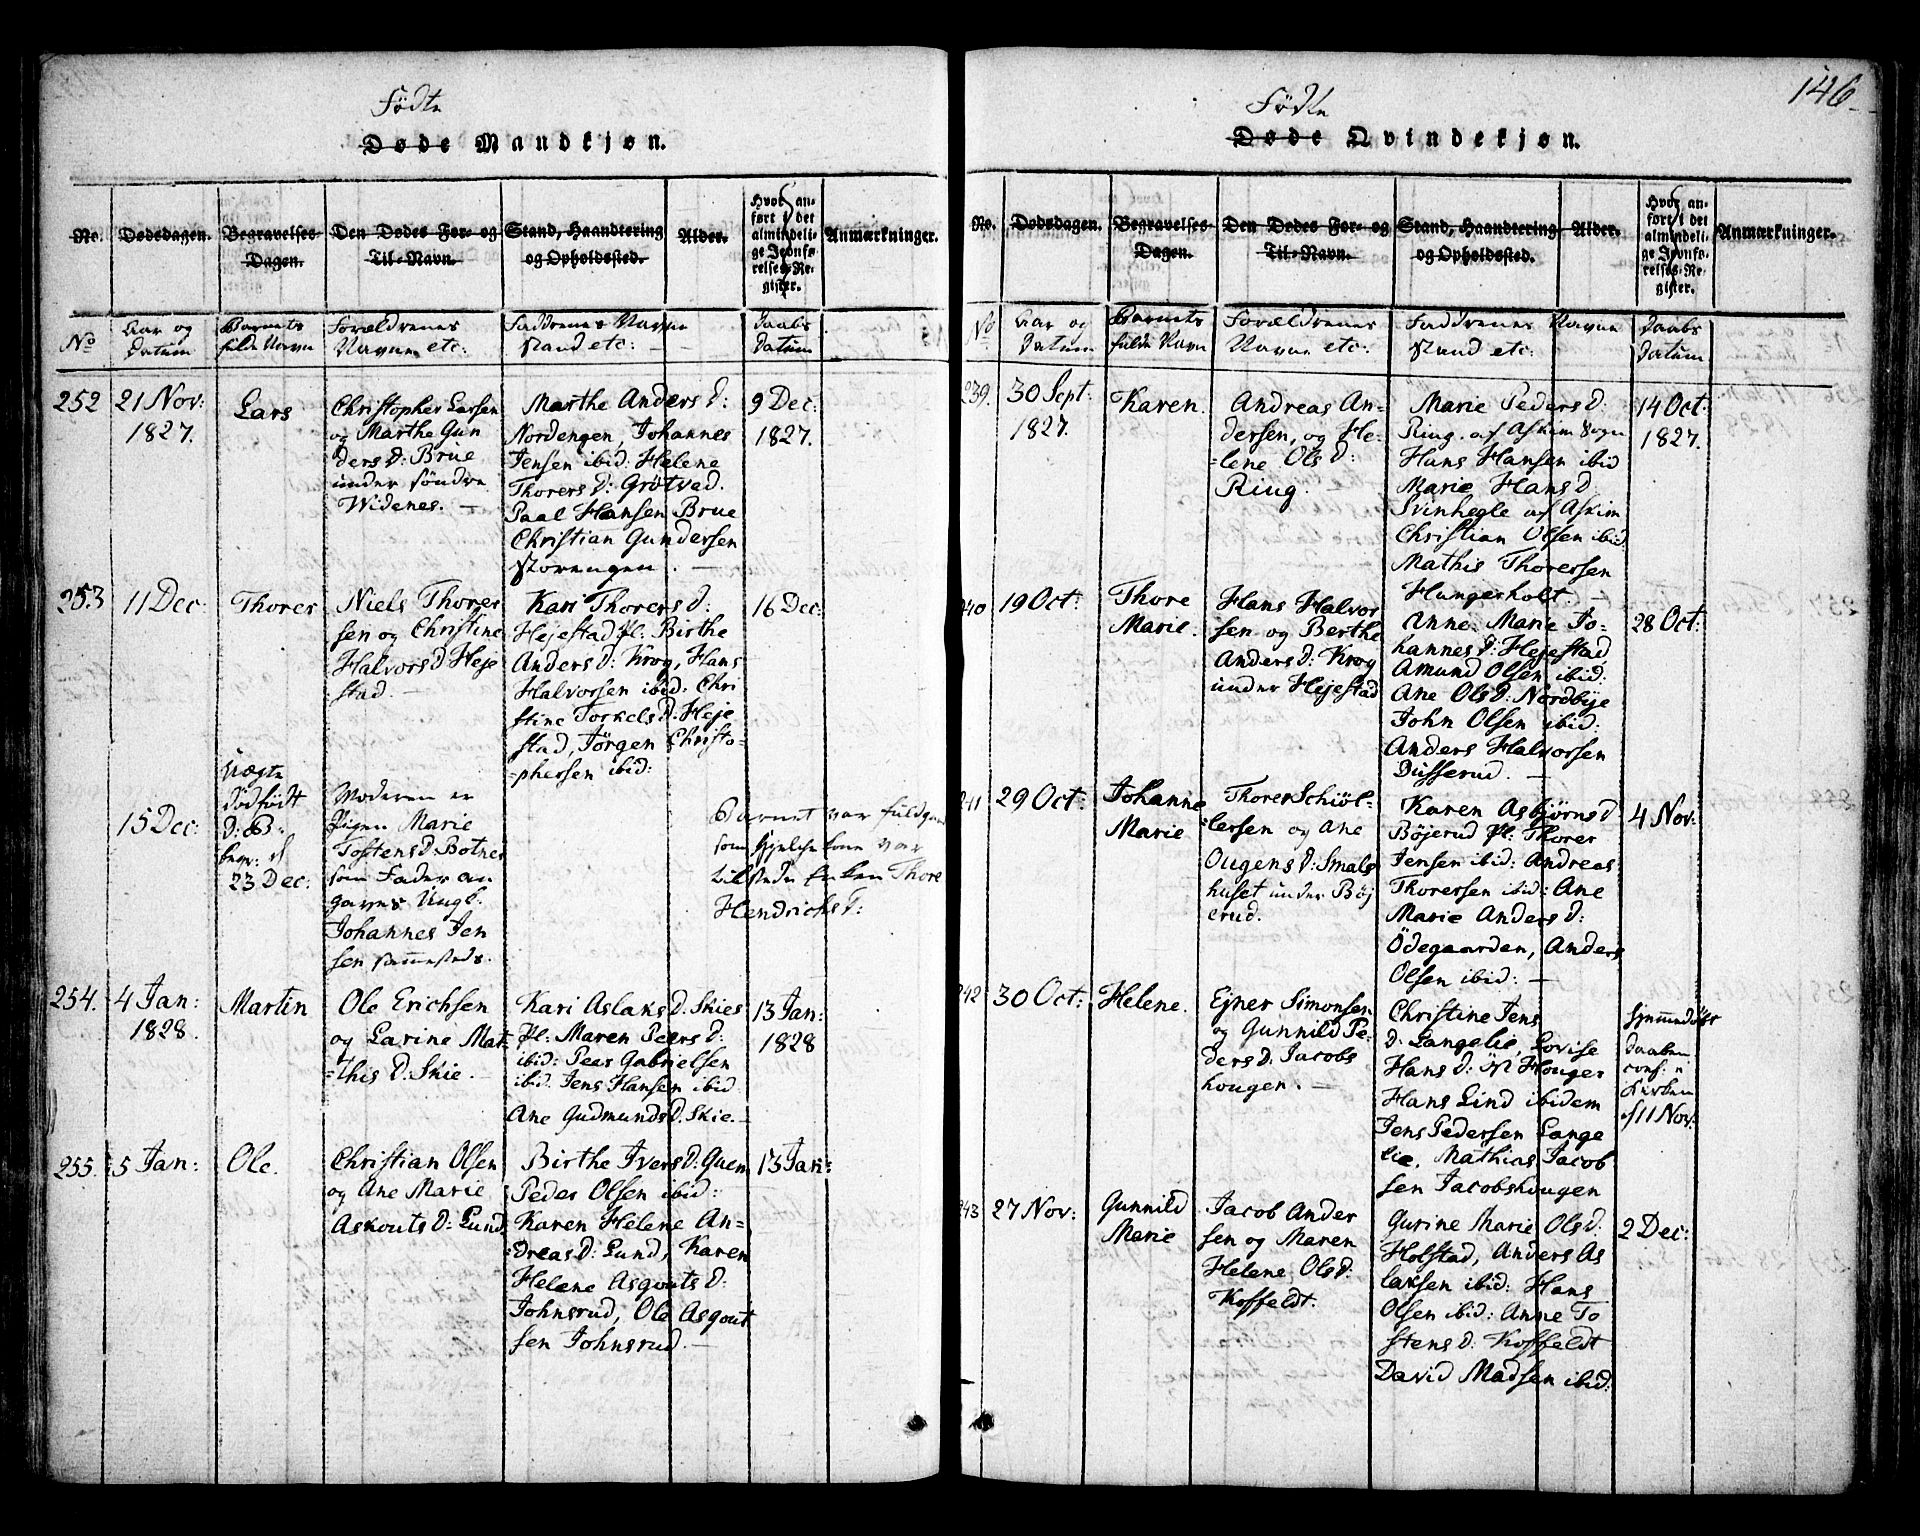 Födte
Døde Mandkjøn.
No. Dødsdagen. Begravelses-Dagen. Den Dødes For- og Til-Navn. Stand, Haandtering og Opholdssted. Alder. Hvor anført i det almindelige Jevnførelses-Register. Anmærkninger.
No Aar og Datum Barnets fulde Navn Forældrenes Navne etc: Faddrenes Navne Stand etc: Daabs Datum
252 21 Nov: 1827. Lars
Christopher Larsen
og Marthe Gun
ders D: Brue
under søndre
Widenes. —
Marthe Anders D:
Nordengen, Johannes
Jensen ibid: Helene
Thorers D: Grötvad.
Paal Hansen Brue
Christian Gundersen
Storengen. —
9 Dec: 1827.
253 11 Dec: Thorer
Niels Thorer
sen og Christine
Halvors D: Heje
stad. —
Kari Thorers D:
Hejestad Pl: Birthe
Anders D: Krog, Hans
Halvorsen ibid: Chri
stine Torkels D: Heje
stad, Jørgen Christo-
=phersen ibid:
16 Dec:
15 Dec:
Uægte
dödfödt
D: B:
begr: d
23 Dec:
Moderen er
Pigen Marie
Tostens D: Botner
som Fader an
gaves Ungk.
Johannes Jen
sen sammesteds.
Barnet var fuldgam
som Hjelpekone var
tilstede Enken Thore
Hendrichs D:
254. 4 Jan: 1828. Martin
Ole Erichsen
og Larine Mat-
=this D: Skie. —
Kari Aslaks D: Skies
Pl: Maren Peers D:
ibid: Peer Gabrielsen
ibid. Jens Hansen ibid
Ane Gudmunds D: Skie. —
13 Jan: 1828
255. 5 Jan: Ole.
Christian Olsen
og Ane Marie
Askouts D: Lund.
Birthe Ivers D: Guen
Peder Olsen ibid:
Karen Helene An=
=dreas D: Lund, Karen
Helene Asgouts D:
Johnsrud, Ole Asgout
sen Johnsrud. —
13 Jan:
146
Födte
Døde Qvindekjøn.
No. Dødsdagen. Begravelses-Dagen. Den Dødes For- og Til-Navn. Stand, Haandtering og Opholdssted. Alder. Hvor anført i det almindelige Jevnførelses-Register. Anmærkninger.
No Aar og Datum Barnets fulde Navn Forældrenes Navne etc: Faddrenes Navne Stand etc: Daabs Datum
239. 30 Sept. 1827. Karen.
Andreas An=
dersen, og He=
=lene Ols D:
Ring.
Marie Peders D:
Ring. af Askim Sogn
Hans Hansen ibid
Marie Hans D.
Svinhegle af Askim
Christian Olsen ibid:
Mathis Thorersen
Hungerholt. —
14 Oct: 1827.
240 19 Oct: Thore Marie.
Hans Halvor
sen og Berthe
Anders D: Krog
under Hejestad
Anne Marie Jo=
hannes D: Hejestad
Amund Olsen ibid:
Ane Ols D: Nordbye
John Olsen ibid.
Anders Halvorsen
Dusserud. —
28 Oct:
241 29 Oct: Johanne Marie
Thorer Schiöl=
=lersen og Ane
Ougens D: Smals
huset under Böj
erud.
Karen Asbjörns D
Böjerud Pl: Thorer
Jensen ibid: Andreas
Thorersen ibid: Ane
Marie Anders D:
Ödegaarden, Anders
Olsen ibid: —
4 Nov:
242 30 Oct: Helene.
Ejner Simonsen
og Gunnild Pe
ders D: Jacobs
hougen. —
Christine Jens
D: Langelie, Lovise
Hans D: Houger
Hans Lind ibidem
Jens Pedersen Lange
lie. Mathias Jacob
sen Jacobshougen
Hjemmedöbt
Daaben
conf: i
Kirken
d 11 Nov:
243 27 Nov: Gunnild Marie
Jacob Ander
sen og Maren
Helene Ols D:
Koffeldt.
Gurine Marie Ols D:
Holstad, Anders As
laksen ibid: Hans
Olsen ibid: Anne To
stens D: Koffeldt
David Madsen ibid:
2 Dec: